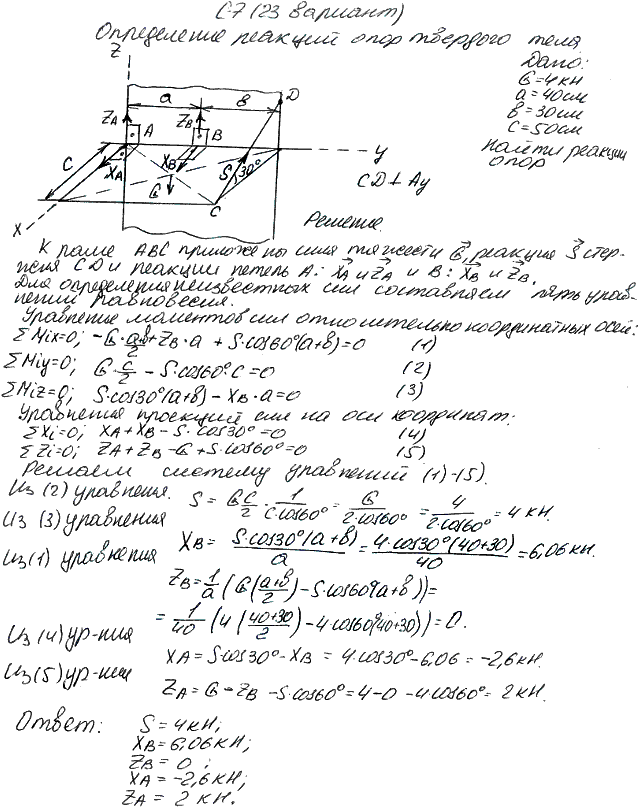 С-7 (23 вариант)
Определение реакций опор твердого тела
Дано:
G=4кН
a=40см
в=30см
c=50см
найти реакции опор
Z
a
в
D
ZA
A
ZB
B
y
C
XA
XB
G
S
30°
C
X
CD⊥Ay
Решение.
К раме ABC приложены сила тяжести G, реакция S стер-
жня CD и реакции петель A: XA и ZA и B: XB и ZB.
Для определения неизвестных сил составляем пять урав-
нений равновесия.
Уравнение моментов сил относительно координатных осей:
ΣMix=0; -G·(a+в)/2+ZB·a + S·cos60°(a+в)=0 (1)
ΣMiy=0; G·c/2 - S·cos60°·c=0 (2)
ΣMiz=0; S·cos30°(a+в) - XB·a=0 (3)
Уравнения проекций сил на оси координат:
ΣXi=0; XA+XB-S·cos30°=0 (4)
ΣZi=0; ZA+ZB-G+S·cos60°=0 (5)
Решаем систему уравнений (1)-(5).
Из (2) уравнения. S = Gc/2 · 1/(c·cos60°) = G/(2·cos60°) = 4/(2·cos60°) = 4 кН.
Из (3) уравнения
XB = S·cos30°(a+в)/a = 4·cos30°(40+30)/40 = 6,06кН.
Из (1) уравнения
ZB = 1/a (G((a+в)/2) - S·cos60°(a+в)) =
= 1/40 (4((40+30)/2) - 4·cos60°(40+30)) = 0.
Из (4) ур-ния
XA = S·cos30° - XB = 4·cos30° - 6,06 = -2,6кН.
Из (5) ур-ния
ZA = G - ZB - S·cos60° = 4-0 - 4cos60° = 2кН.
Ответ: S = 4кН;
XB = 6,06кН;
ZB = 0 ;
XA = -2,6кН;
ZA = 2 кН.